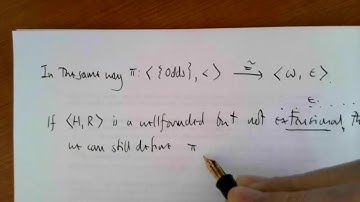 In the same way π: < {Odds}, < > ≅⟶ < ω, ∈ >.
∈
If <H, R> is a wellfounded but not extensional,
we can still define π